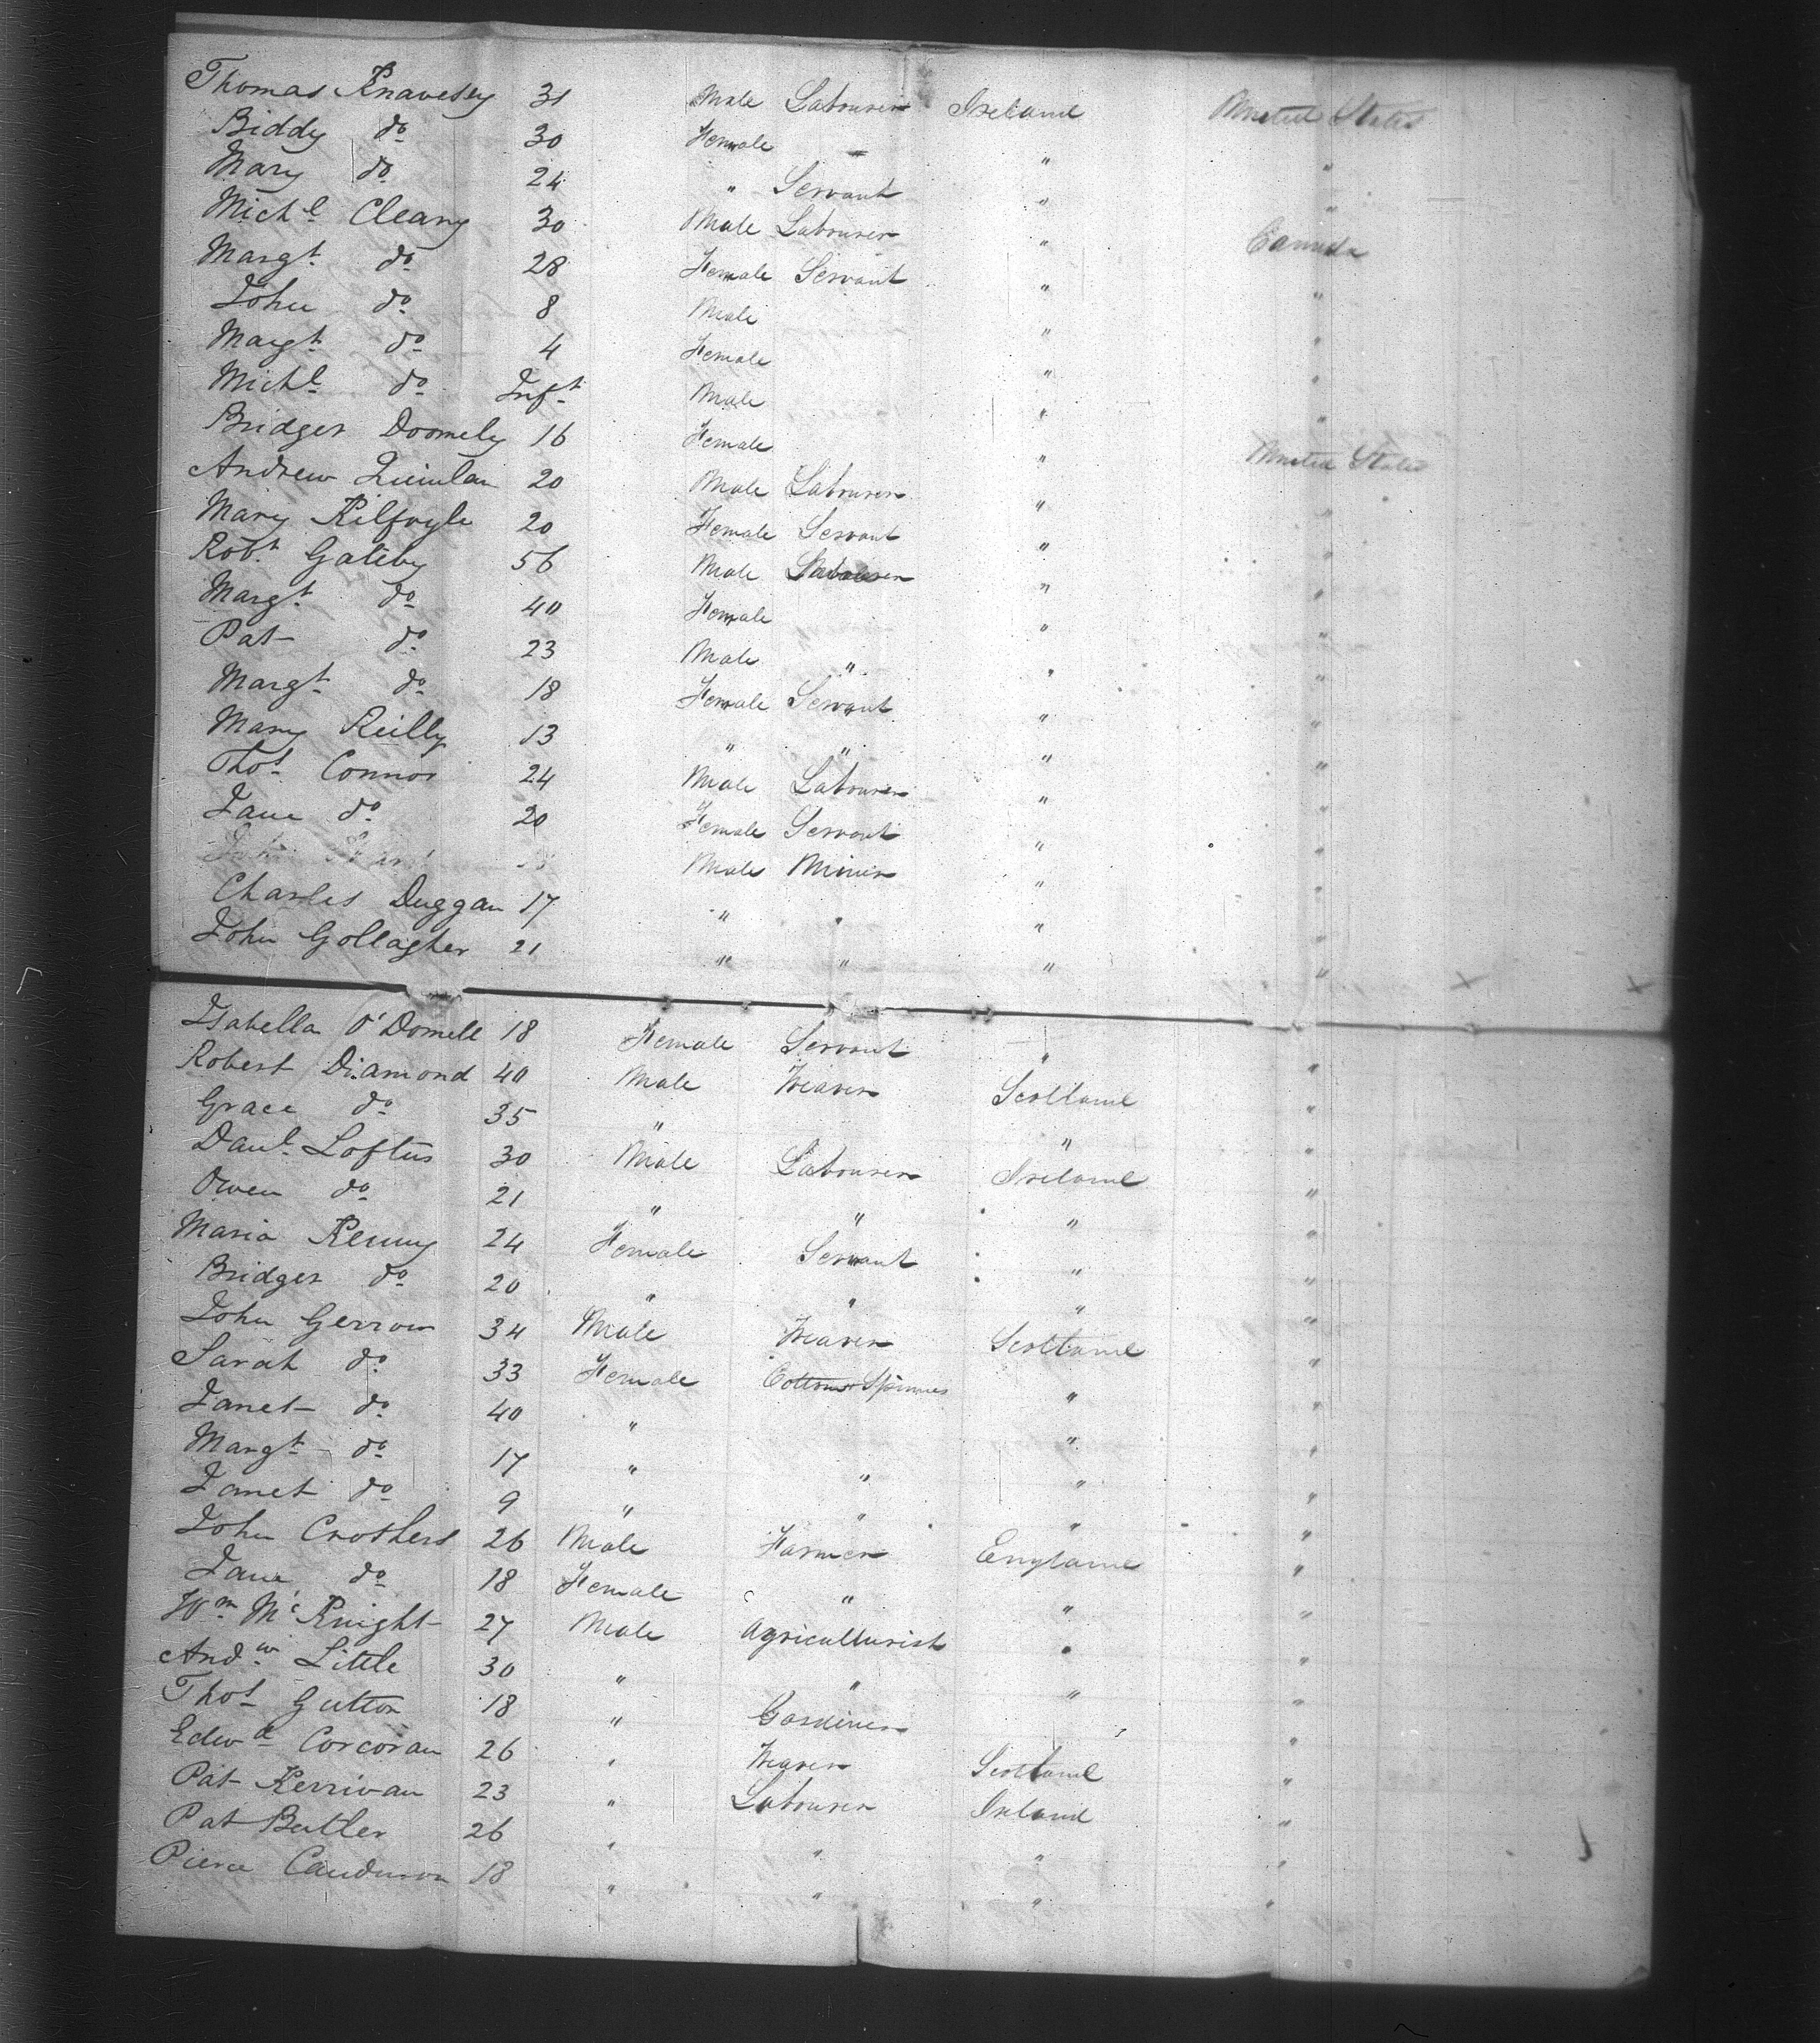 Thomas Knavesey 31 Male Labourer Ireland United States
Biddy do 30 Female – " "
Mary do 24 " Servant " "
Michl Cleary 30 Male Labourer " Canada
Margt do 28 Female Servant " "
John do 8 Male " "
Margt do 4 Female " "
Michl do Inft Male " "
Bridget Donnely 16 Female " United States
Andrew Quinlan 20 Male Labourer " "
Mary Kilfoyle 20 Female Servant " "
Robt Gateby 56 Male Labourer " "
Margt do 40 Female " "
Pat do 23 Male " " "
Margt do 18 Female Servant " "
Mary Reilly 13 " " " "
Thos Connor 24 Male Labourer " "
Jane do 20 Female Servant " "
John Male Miner " "
Charles Duggan 17 " " " "
John Gollagher 21 " " " "
Isabella O'Donnell 18 Female Servant " "
Robert Diamond 40 Male Weaver Scotland "
Grace do 35 " " "
Danl Loftus 30 Male Labourer Ireland "
Owen do 21 " " " "
Maria Kenny 24 Female Servant " "
Bridget do 20 " " " "
John Gerrow 34 Male Weaver Scotland "
Sarah do 33 Female Cotton Spinner " "
Janet do 40 " " "
Margt do 17 " " " "
Janet do 9 " " " "
John Crothers 26 Male Farmer England "
Jane do 18 Female " " "
Wm McKnight 27 Male Agriculturist " "
Andw Little 30 " " " "
Thos Gutton 18 " Gardiner "
Edwd Corcoran 26 " Weaver Scotland "
Pat Kerrivan 23 " Labourer Ireland "
Pat Butler 26 " " " "
Pierce 18 " " " "